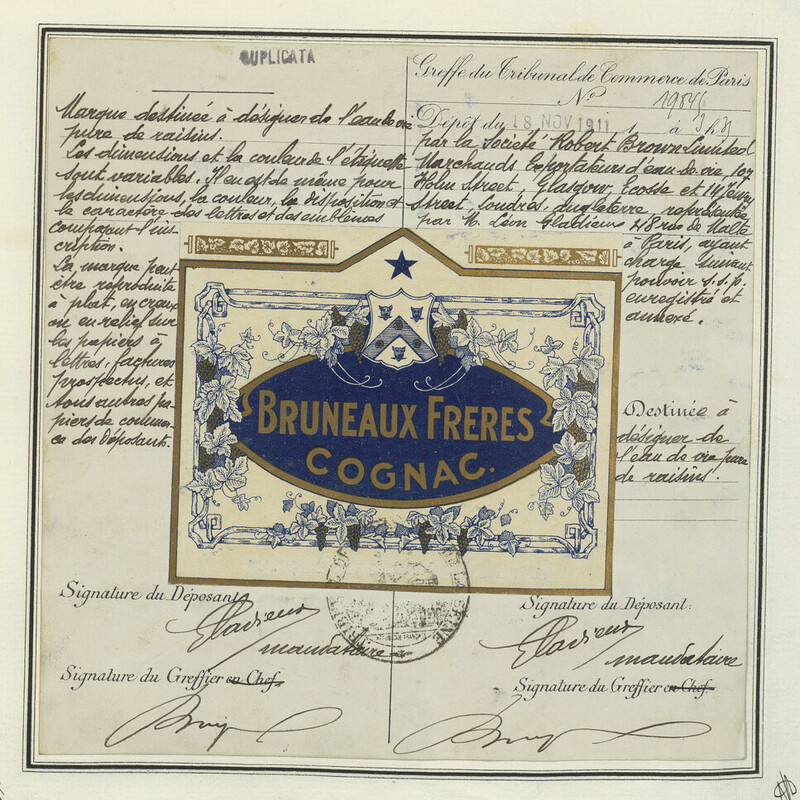 DUPLICATA
Marque destinée à désigner de l'eau de vie
pure de raisins.
Les dimensions et la couleur de l'étiquette
sont variables. Il en est de même pour
les dimensions, la couleur, la disposition et
le caractère des lettres et des emblèmes
composant l'ins
cription.
La marque peut
être reproduite
à plat, en creux
ou en relief sur
les papiers à
lettres, factures
prospectus, et
tous autres pa-
piers de commer-
ce des Déposants.
Greffe du Tribunal de Commerce de Paris
No
Dépôt du 18 NOV 1911 à 3 h
par la Société Robert Brown Limited
Marchands Exportateurs d'eau de vie, 107
Holm Street, Glasgow, Ecosse et 14 Jewry
Street Londres. Angleterre, représentée
par M. Léon Gladieux 48 rue de Malte
à Paris, ayant
charge suivant
pouvoir s.s.p.
enregistré et
annexé.
Destinée à
désigner de
l'eau de vie pure
de raisins.
BRUNEAUX FRERES
COGNAC.
Signature du Déposant:
Gladieux
mandataire
Signature du Greffier en Chef
Signature du Déposant:
Gladieux
mandataire
Signature du Greffier en Chef